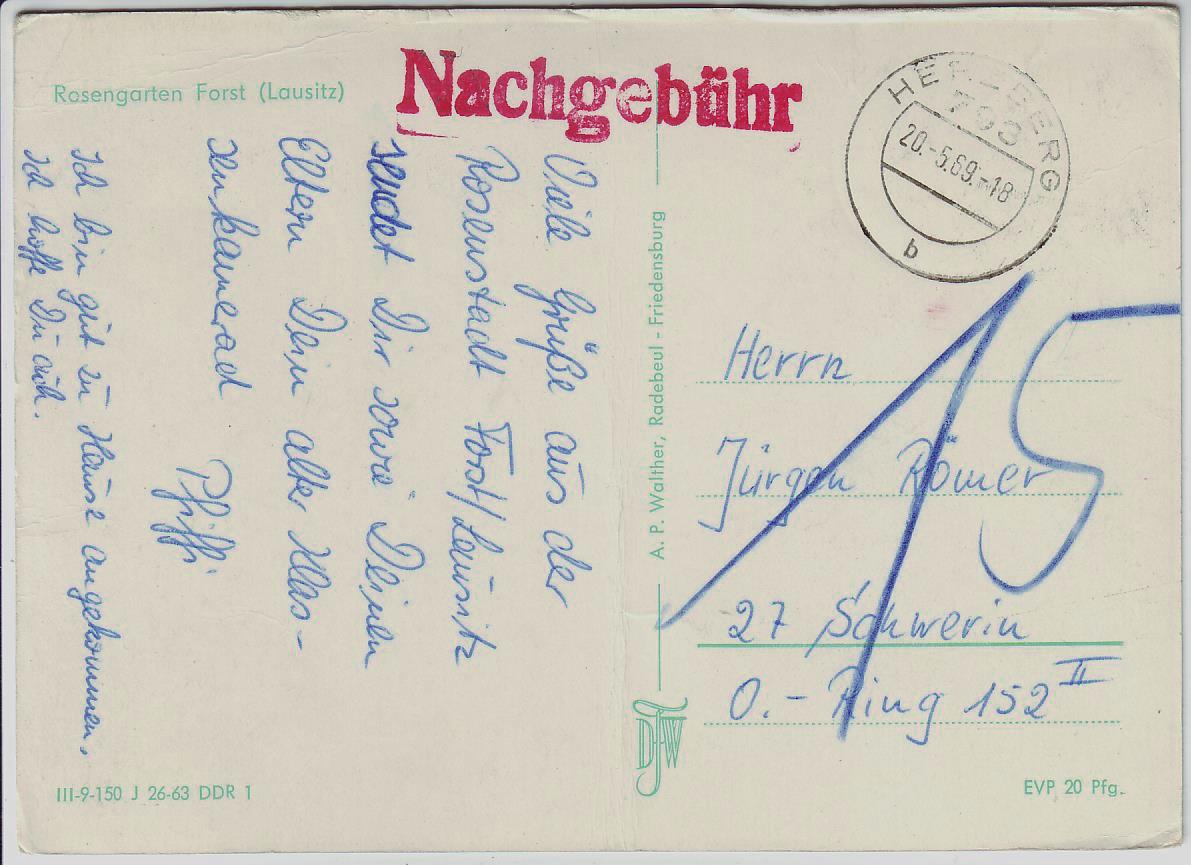 Rosengarten Forst (Lausitz)
Nachgebühr
HERZBERG
793
20.-5.69.-18
b
Viele Grüße aus der
Rosenstadt Forst/Lausitz
sendet Dir sowie Deinen
Eltern Dein alter Klas-
senkamerad
Pfiffi
Ich bin gut zu Hause angekommen.
Ich hoffe Du auch.
A. P. Walther, Radebeul - Friedensburg
15
Herrn
Jürgen Römer
27 Schwerin
O.-Ring 152 II
III-9-150 J 26-63 DDR 1
EVP 20 Pfg.